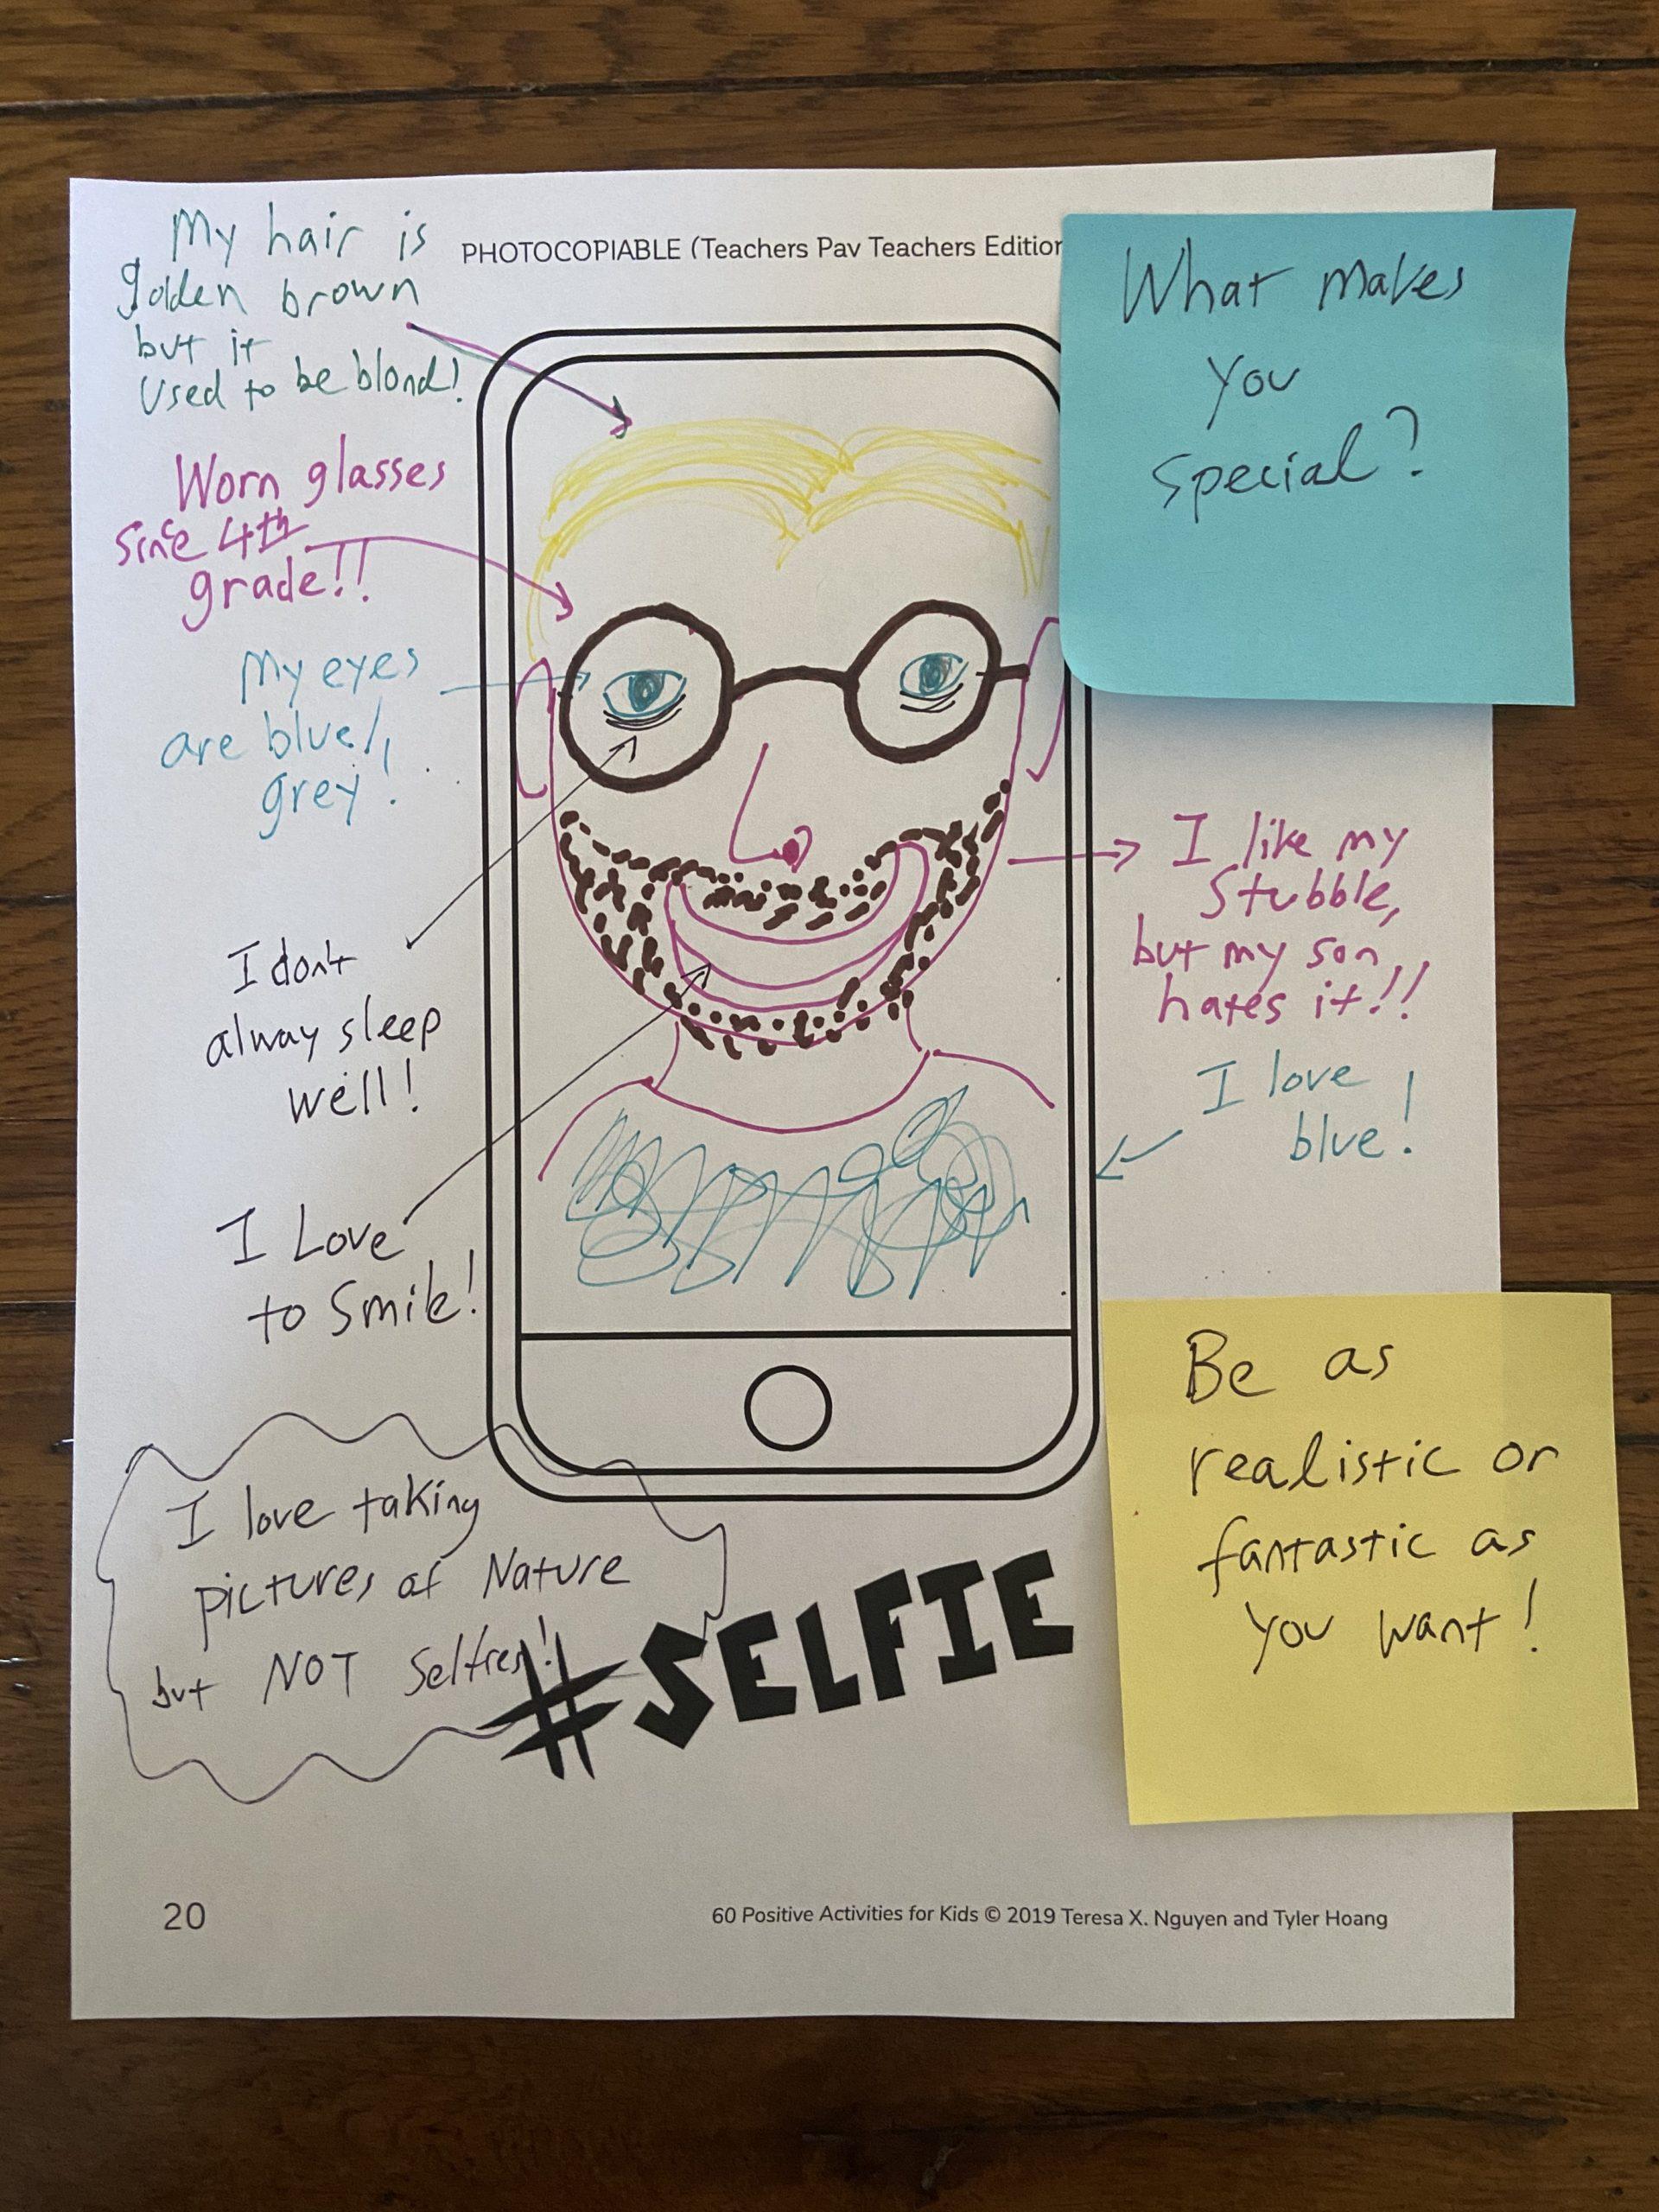 PHOTOCOPIABLE (Teachers Pav Teachers Edition
My hair is
golden brown
but it
used to be blond!
Worn glasses
since 4th
grade!!
My eyes
are blue/
grey!
I don't
alway sleep
well!
I Love
to Smile!
I love taking
pictures of Nature
but NOT Selfies!
What makes
you
special?
I like my
Stubble,
but my son
hates it!!
I love
blue!
Be as
realistic or
fantastic as
you want!
#SELFIE
20
60 Positive Activities for Kids © 2019 Teresa X. Nguyen and Tyler Hoang